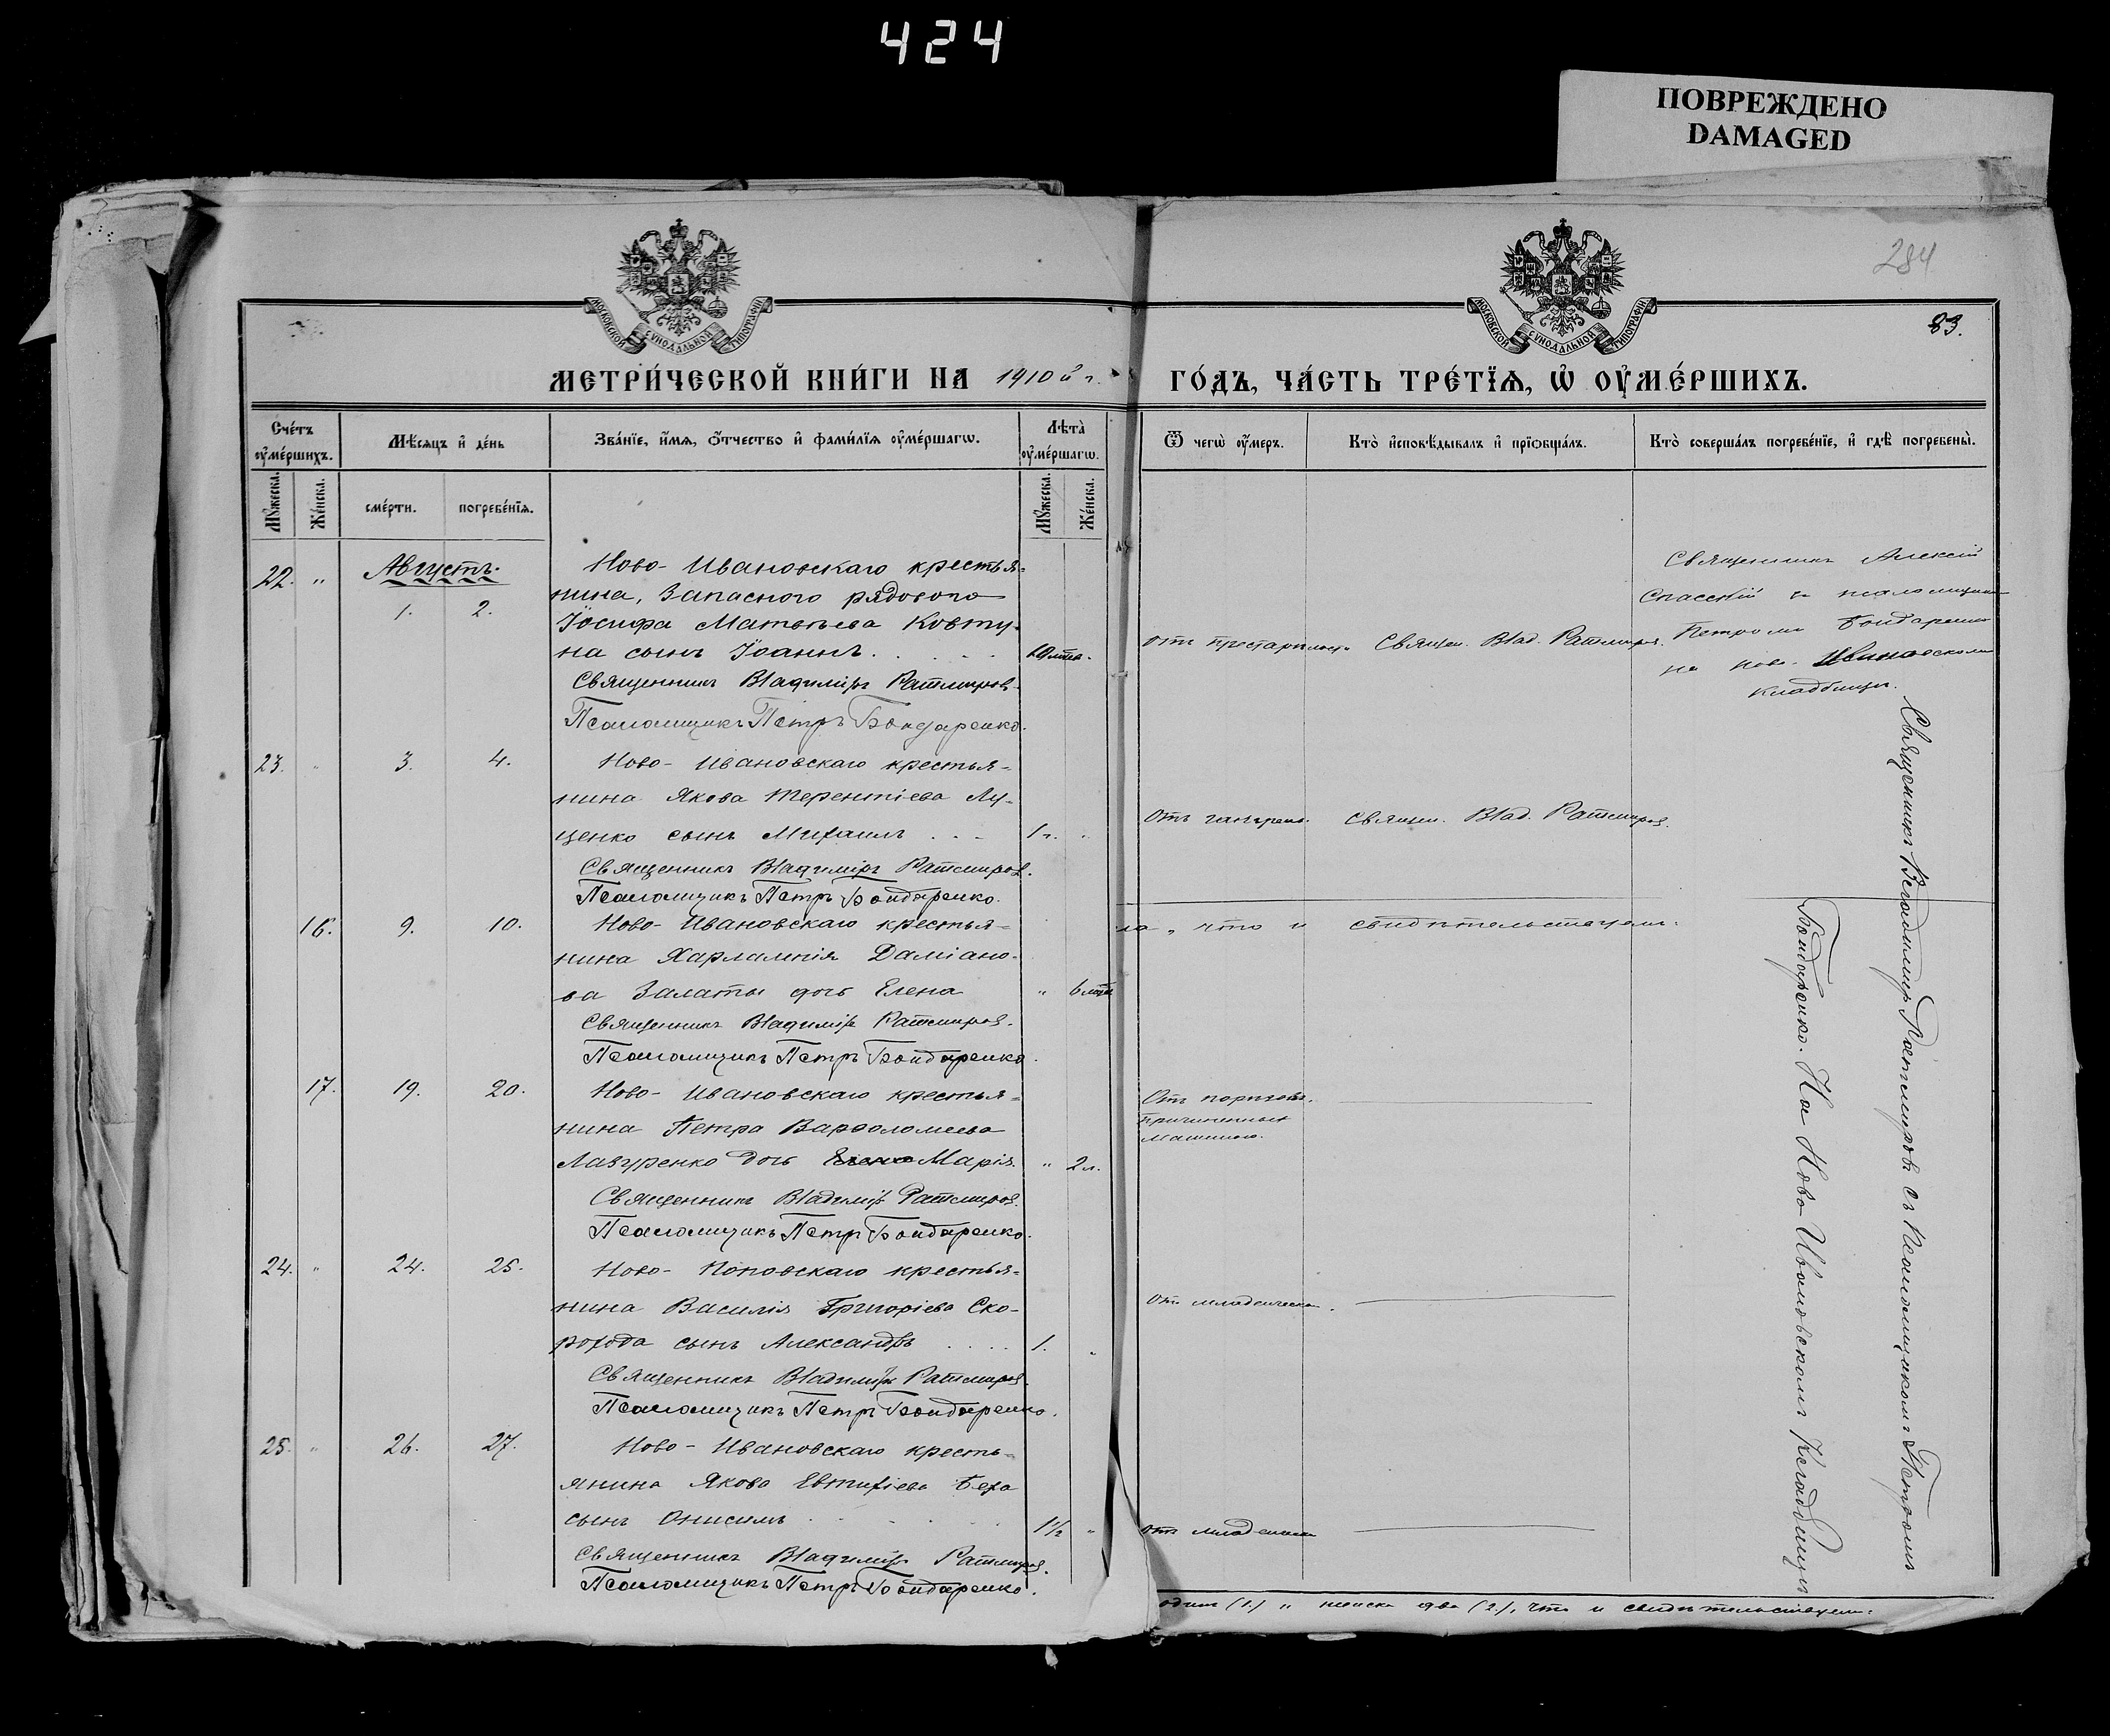 424
ПОВРЕЖДЕНО
DAMAGED
284
МОСКОВСКОЙ СУНОДАЛЬНОЙ ТИПОГРАФІИ
МОСКОВСКОЙ СУНОДАЛЬНОЙ ТИПОГРАФІИ
83.
МЕТРИ́ЧЕСКОЙ КНИ́ГИ НА 1910й г. ГО́ДЪ, ЧА́СТЬ ТРЕ́ТЇѦ, Ѡ҆ ОУ҆МЕ́РШИХЪ.
Сче́тъ оу҆ме́ршихъ.
Мѣ́сѧцъ и҆ де́нь
Зва́нїе, и҆́мѧ, ѻ҆́тчество и҆ фами́лїѧ оу҆ме́ршагѡ.
Лѣта̀ оу҆ме́ршагѡ.
Ѿ чегѡ̀ оу҆́меръ.
Кто̀ и҆сповѣ́дывалъ и҆ прїѡбща́лъ.
Кто̀ соверша́лъ погребе́нїе, и҆ гдѣ̀ погребены̀.
Мꙋ́жеска.
Же́нска.
сме́рти.
погребе́нїѧ.
Мꙋ́жеска.
Же́нска.
22. " Августъ. 1. 2.
Ново-Ивановскаго крестья-
нина, Запасного рядового
Іосифа Матвѣева Ковту-
на сынъ Іоаннъ.
Священникъ Владиміръ Ратмировъ.
Псаломщикъ Петръ Бондаренко.
Священ. Влад. Ратмиров.
Священникъ Алексій
Спасскій съ псаломщикомъ
Петромъ Бондаренко
на Ново-Ивановскомъ
кладбищѣ.
23. " 3. 4.
Ново-Ивановскаго крестья-
нина Якова Терентіева Лу-
ценко сынъ Михаилъ 1 г. "
Священникъ Владиміръ Ратмиров.
Псаломщикъ Петръ Бондаренко.
Священ. Влад. Ратмиров.
16. 9. 10.
Ново-Ивановскаго крестья-
нина Харлампія Даміано-
ва Залаты дочь Елена " 6 лѣтъ
Священникъ Владиміръ Ратмиров.
Псаломщикъ Петръ Бондаренко.
что и свидѣтельствуемъ.
17. 19. 20.
Ново-Ивановскаго крестья-
нина Петра Варѳоломеева
Лавуренко дочь Елена Марія. " 2 л.
Священникъ Владиміръ Ратмиров.
Псаломщикъ Петръ Бондаренко.
Отъ порѣзовъ.
причиненныхъ
машиною.
24. " 24. 25.
Ново-Поповскаго крестья-
нина Василія Григоріева Ско-
рохода сынъ Александръ 1. "
Священникъ Владиміръ Ратмиров.
Псаломщикъ Петръ Бондаренко.
От младенческ.
25. " 26. 27.
Ново-Ивановскаго кресть-
янина Якова Евтихіева Беха
сынъ Онисимъ 1 1/2 "
Священникъ Владиміръ Ратмиров.
Псаломщикъ Петръ Бондаренко.
Священникъ Владимир Ратмировъ съ Псаломщикомъ Петромъ
Бондаренко. На Ново-Ивановскомъ Кладбищѣ
один (1.) и женска два (2.), что и свидѣтельствуемъ.